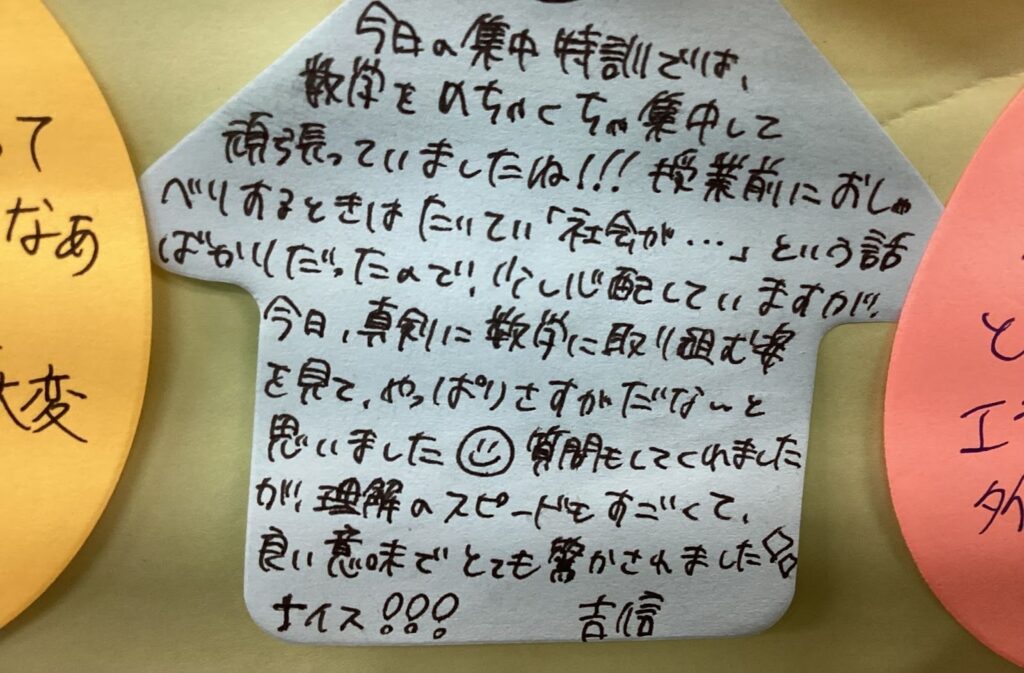 今日の集中特訓では、
数学をめちゃくちゃ集中して
頑張っていましたね!!!授業前におしゃ
べりするときはだいたい「社会が…」という話
ばかりだったので、少し心配していますが、
今日、真剣に数学に取り組む姿
を見て、やっぱりさすがだな〜と
思いました☺質問もしてくれました
が、理解のスピードもすごくて、
良い意味でとても驚かされました!!
ナイス!!! 吉信
って
なあ
大変
と
エ
外